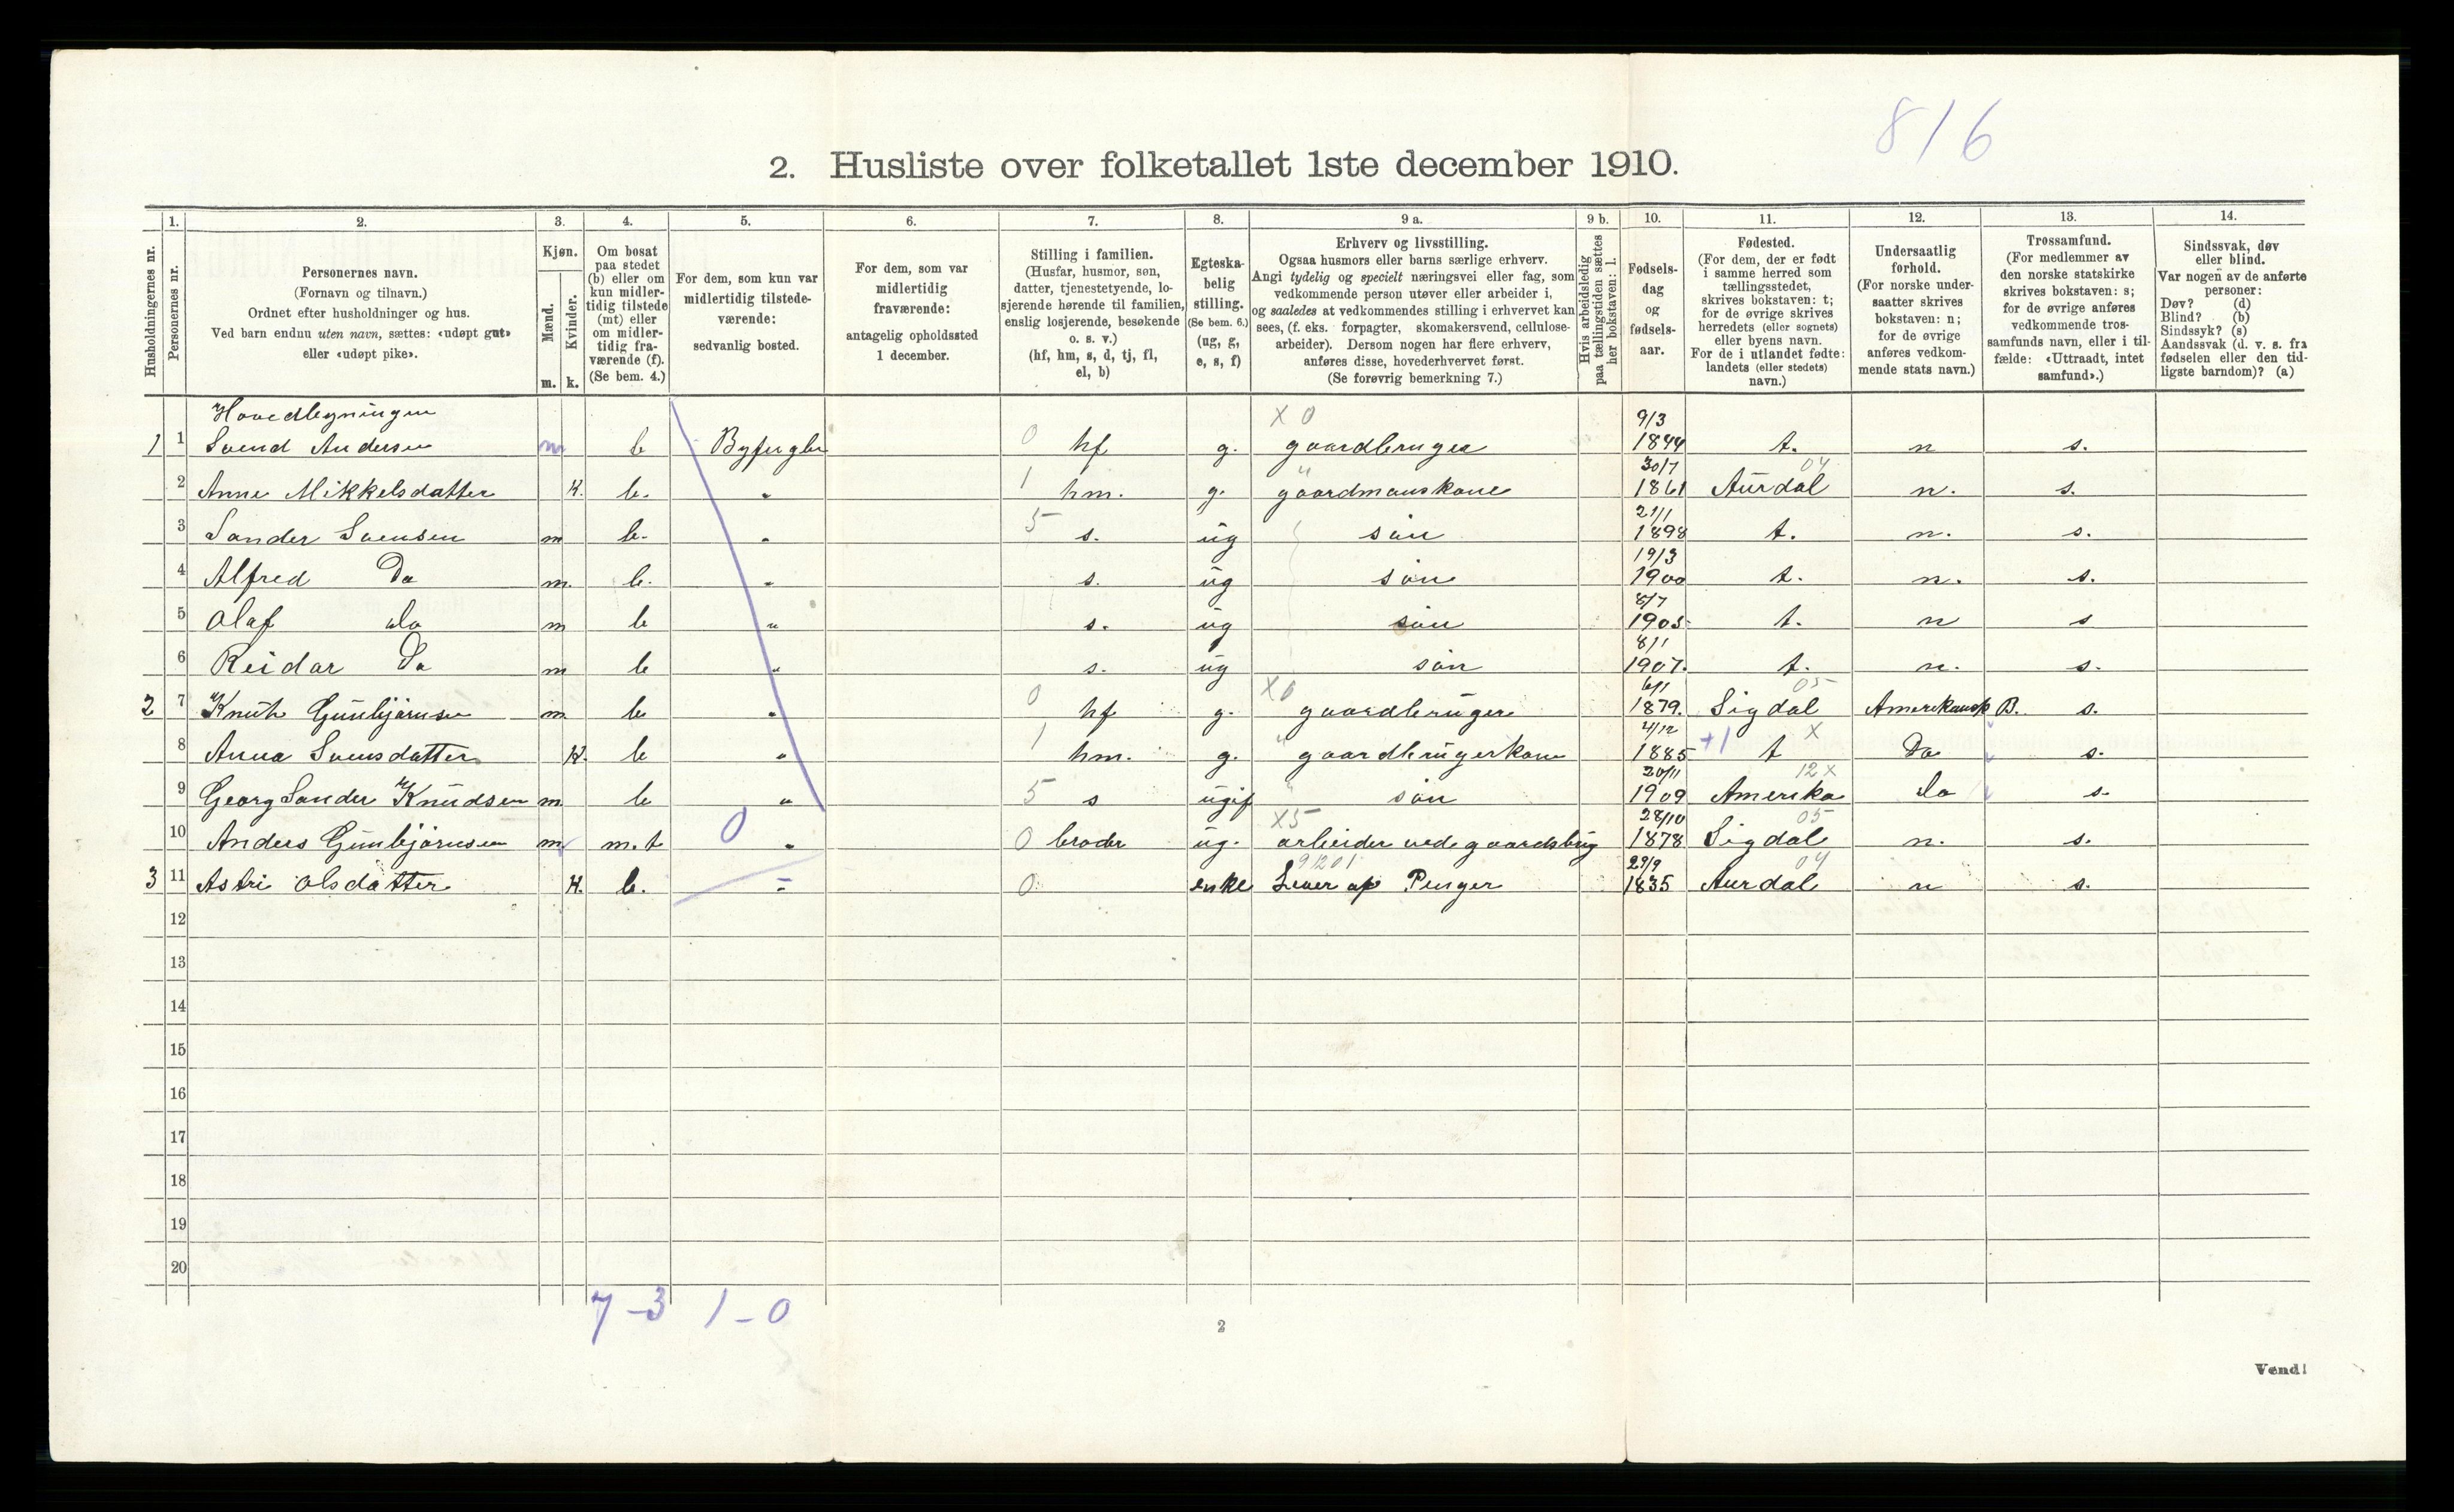 816
2. Husliste over folketallet 1ste december 1910.
Husholdningernes nr.
1.
Personernes nr.
2.
Personernes navn.
(Fornavn og tilnavn.)
Ordnet efter husholdninger og hus.
Ved barn endnu uten navn, sættes: «udøpt gut»
eller «udøpt pike».
3.
Kjøn.
Mænd.
m.
Kvinder.
k.
4.
Om bosat
paa stedet
(b) eller om
kun midler-
tidig tilstede
(mt) eller
om midler-
tidig fra-
værende (f).
(Se bem. 4.)
5.
For dem, som kun var
midlertidig tilstede-
værende:
sedvanlig bosted.
6.
For dem, som var
midlertidig
fraværende:
antagelig opholdssted
1 december.
7.
Stilling i familien.
(Husfar, husmor, søn,
datter, tjenestetyende, lo-
sjerende hørende til familien,
enslig losjerende, besøkende
o. s. v.)
(hf, hm, s, d, tj, fl,
el, b)
8.
Egteska-
belig
stilling.
(Se bem. 6.)
(ug, g,
e, s, f)
9 a.
Erhverv og livsstilling.
Ogsaa husmors eller barns særlige erhverv.
Angi tydelig og specielt næringsvei eller fag, som
vedkommende person utøver eller arbeider i,
og saaledes at vedkommendes stilling i erhvervet kan
sees, (f. eks. forpagter, skomakersvend, cellulose-
arbeider). Dersom nogen har flere erhverv,
anføres disse, hovederhvervet først.
(Se forøvrig bemerkning 7.)
9 b.
Hvis arbeidsledig
paa tællingstiden sættes
her bokstaven: l.
10.
Fødsels-
dag
og
fødsels-
aar.
11.
Fødested.
(For dem, der er født
i samme herred som
tællingsstedet,
skrives bokstaven: t;
for de øvrige skrives
herredets (eller sognets)
eller byens navn.
For de i utlandet fødte:
landets (eller stedets)
navn.)
12.
Undersaatlig
forhold.
(For norske under-
saatter skrives
bokstaven: n;
for de øvrige
anføres vedkom-
mende stats navn.)
13.
Trossamfund.
(For medlemmer av
den norske statskirke
skrives bokstaven: s;
for de øvrige anføres
vedkommende tros-
samfunds navn, eller i til-
fælde: «Uttraadt, intet
samfund».)
14.
Sindssvak, døv
eller blind.
Var nogen av de anførte
personer:
Døv? (d)
Blind? (b)
Sindssyk? (s)
Aandssvak (d. v. s. fra
fødselen eller den tid-
ligste barndom)? (a)
Hovedbygningen X 0 9/3
1 1 Svend Andersen m b Byfuglien 0 hf g. gaardbruger 1844 t. n s.
" 30/7 04
2 Anne Mikkelsdatter K. b. " 1 hm. g. gaardmanskone 1861 Aurdal n. s.
21/1
3 Sander Svensen m b. " 5 s. ug søn 1898 t. n. s.
19/3
4 Alfred Do m. b. " s. ug søn 1900 t. n. s.
8/7
5 Olaf do m b " s. ug søn 1905 t. n s
8/1
6 Reidar Do m b " s. ug søn 1907. t. n. s.
X0 6/1 05
2 7 Knut Gunbjørnsen m b " 0 hf g. gaardbruger 1879. Sigdal Amerikansk B. s.
" 4/12 X
8 Anna Svensdatter K. b " 1 hm. g. gaardbrugerkone 1885 +1 t Do s.
" 20/11 12 X
9 Georg Sander Knudsen m b " 5 s ugif søn 1909 Amerika do s.
X5 28/10 05
10 Anders Gunbjørnsen m m. t 0 " 0 broder ug. arbeider ved gaardsbrug 1878 Sigdal n. s.
91201 29/9 04
3 11 Astri Olsdatter K. b. " 0 enke Lever af Penger 1835 Aurdal n s.
12
13
14
15
16
17
18
19
20
7-3 1-0
2
Vend!